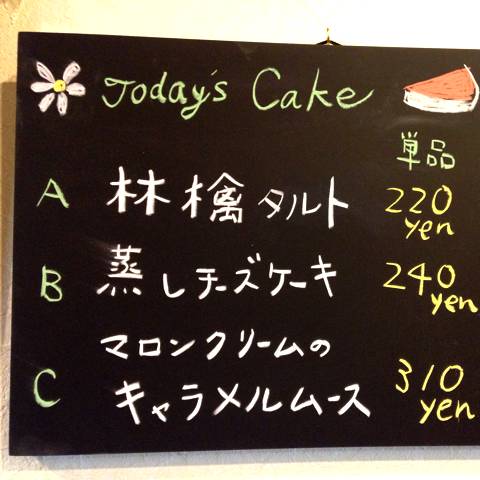 Today's Cake
単品
A 林檎タルト 220 yen
B 蒸しチーズケーキ 240 yen
マロンクリームの
C キャラメルムース 310 yen